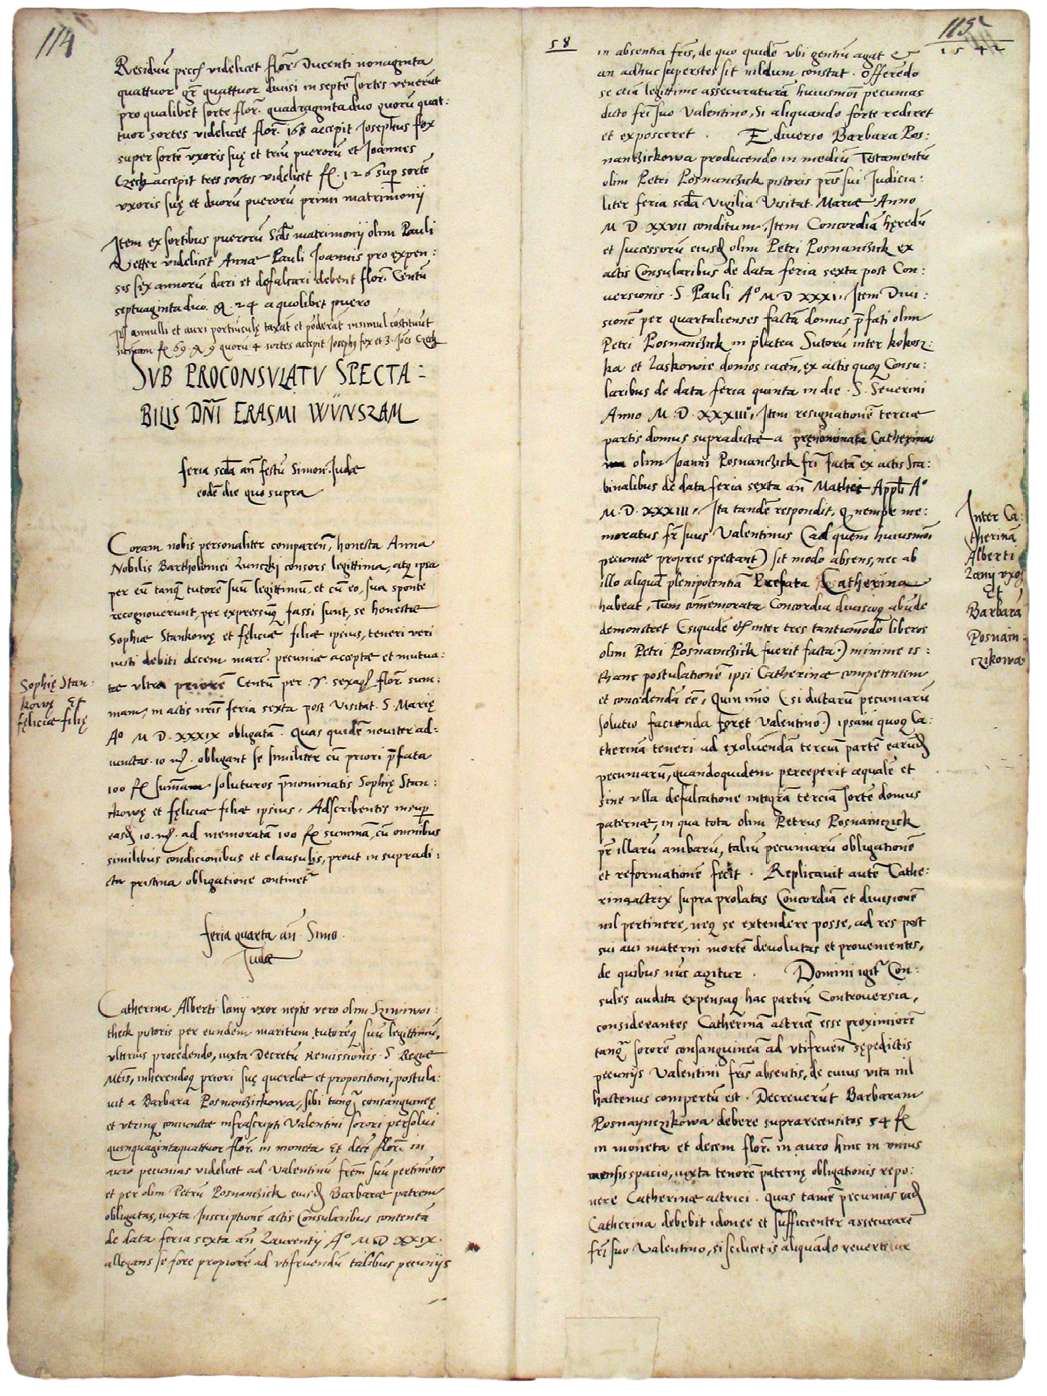 114
Residuũ pecc̃ videlicet flor̃ Ducenti nonaginta
quattuor gr̃ quattuor diuisi in septẽ sortes venerũt
pro qualibet sorte flor̃. quadraginta duo quorũ quat:
tuor sortes videlicet flor̃. 168 accepit Josephus fox
super sortẽ vxoris suę et triũ puerorũ et Joannes
Czech accepit tres sortes videlicet fl. 126 sup sortẽ
vxoris suę et duorũ puerorũ primi matrimonij
Item ex sortibus puerorũ Scdi matrimonij olim Pauli
Vetter videlicet Annæ Pauli Joannis pro expen:
sis sex annorũ dari et defalcari debent flor̃. Centũ
septuaginta duo. gr̃ 24 a quolibet puero
annulli et auri portiunculę taxat et poderat insimul cõstituũt
sum̃am fl 69 gr̃ 9 quorũ 4 sortes accepit Joseph9 fox et 3. Joẽs Czech
SVB PROCONSVLATV SPECTA:
BILIS DÑI ERASMI WÜNSZAM
feria scda añ festũ Simon: Judæ
eodẽ die quo supra
Coram nobis personaliter comparen̄, honesta Anna
Nobilis Bartholomei Zunczky consors legittima, atq ipsa
per eũ tanq̃ tutorẽ suũ legittimũ, et cũ eo, sua sponte
recognouerunt, per expressũq fassi sunt, se honestæ
Sophiæ Stankowę et fęliciæ filiæ ipsius, teneri veri
iusti debiti decem marc̃. pecuniæ acceptæ et mutua:
tæ vltra priorẽ Centũ per gr̃. sexag̃ flor̃. sum:
mam, in actis nr̃is feria sexta post Visitat. S. Marię
A° M D. XXXIX obligatã. Quas quidẽ nouiter ad:
iunctas. 10 mr̃. obligant se similiter cũ priori p̃fata
100 fl sum̃am soluturos p̃nominatis Sophię Stan:
kowę et fęliciæ filiæ ipsius. Adscribentes insup
easd̃ 10. mr̃. ad memoratã 100 fl summã, cũ omnibus
similibus condicionibus et clausulis, prout in supradi:
cta pristina obligatione continet̃
Sophię Stan:
kowę Et
fęliciæ filię
feria quarta añ Simo.
Judæ
Catherina Alberti lanij vxor neptis vero olim Sziwiwoi:
theck pistoris per eundem maritum tutorẽq suũ legittimũ,
vlterius procedendo, iuxta Decretũ Remissionis S. Regiæ
Mtis, inherendoq priori suę querelæ et propositioni, postula:
uit a Barbara Posnanczickowa, sibi tanq̃ consanguineę
et vterinę comunitæ infrascripti Valentini sorori persolui
quinquaginta quattuor flor̃. in moneta Et decẽ flor̃. in
auro pecunias videlicet ad Valentinũ frem̃ suũ pertinẽtes
et per olim Petrũ Posnanczick eiusd̃ Barbaræ patrem
obligatas, iuxta Inscriptionẽ actis Consularibus contentã
de data feria sexta añ Laurentij A° M D XXIX.
allegans se fore propiorẽ ad vtifruendũ talibus pecunijs
115
58
1542
in absentia fris̃, de quo quidẽ vbi gentiũ agat Et
an adhuc superstes sit nildum constat. Offerẽdo
se etiã legittime assecuraturã huiusmoi pecunias
dicto fri suo Valentino, Si aliquando forte rediret
et exposceret. E diuerso Barbara Pos:
nanczickowa producendo in mediũ Testamentũ
olim Petri Posnanczick pistoris pris̃ sui Judicia:
liter feria scda Vigilia Visitat. Mariæ Anno
M D XXVII conditum, Item Concordiã hęredũ
et successorũ eiusd̃ olim Petri Posnanczick ex
actis Consularibus de data feria sexta post Con:
uersionis S. Pauli A° M D XXXI, Item Diui:
sionẽ per quartalienses factã domus p̃fati olim
Petri Posnanczick in platea Sutorũ inter kokosz:
ka et Laskowie domos iacen̄, ex actis quoq Consu:
laribus de data feria quinta in die S. Seuerini
Anno M. D. XXXIII, Item resignationẽ terciæ
partis domus supradictæ a prenominata Catherina
olim Joanni Posnanczick fri factã ex actis Sca:
binalibus de data feria sexta añ Mathei Appli A°
M. D. XXXIII. Ita tandẽ respondit, Quempe me:
moratus fr̃ suus Valentinus (ad quem huiusmoi
pecuniæ proprie spectant) sit modo absens, nec ab
illo aliquã plenipotentiã Prefata Catherina
habeat, Tum comemorata Concordia diuisioq abũde
demonstret (siquidẽ et inter tres tantũmodo liberos
olim Petri Posnanczick fuerit facta) minime is:
thanc postulationẽ ipsi Catherinæ competentem
et concedendã eẽ, Quin imo (si dictarũ pecuniarũ
solutio facienda foret Valentino) ipsam quoq Ca:
therinã teneri ad exoluendã terciã partẽ earũd̃
pecuniarũ, quandoquidem perceperit æquale et
sine vlla defalcatione integrã terciã sortẽ domus
paternæ, in qua tota olim Petrus Posnainczick
pr̃ illarũ ambarũ, taliũ pecuniarũ obligationẽ
et reformationẽ fecit. Replicauit autẽ Cathe:
rina actrix supra prolatas Concordiã et diuisionẽ
nil pertinere, neq se extendere posse, ad res post
sui aui materni mortẽ deuolutas et prouenientes,
de quibus nũc agitur. Domini igit̃ Con:
sules audita expensaq hac partiũ Controuersia,
considerantes Catherinã actricẽ esse proximiorẽ
tanq̃ sororẽ consanguineã ad vtifruen̄ sępedictis
pecunijs Valentini fris̃ absentis, de cuius vita nil
hactenus compertũ est. Decreuerũt Barbaram
Posnaynczikowa debere suprarecensitos 54 fl
in moneta et decem flor̃. in auro hinc in vnius
mensis spacio, iuxta tenorẽ paternę obligationis repo:
nere Catherinæ actrici. Quas tamẽ pecunias ead̃
Catherina debebit idonee et sufficienter assecurare
fri suo Valentino, si scilicet is aliquãdo reuertetur
Inter Ca:
therinã
Alberti
Lanij vxo
Et
Barbarã
Posnain:
czikowa